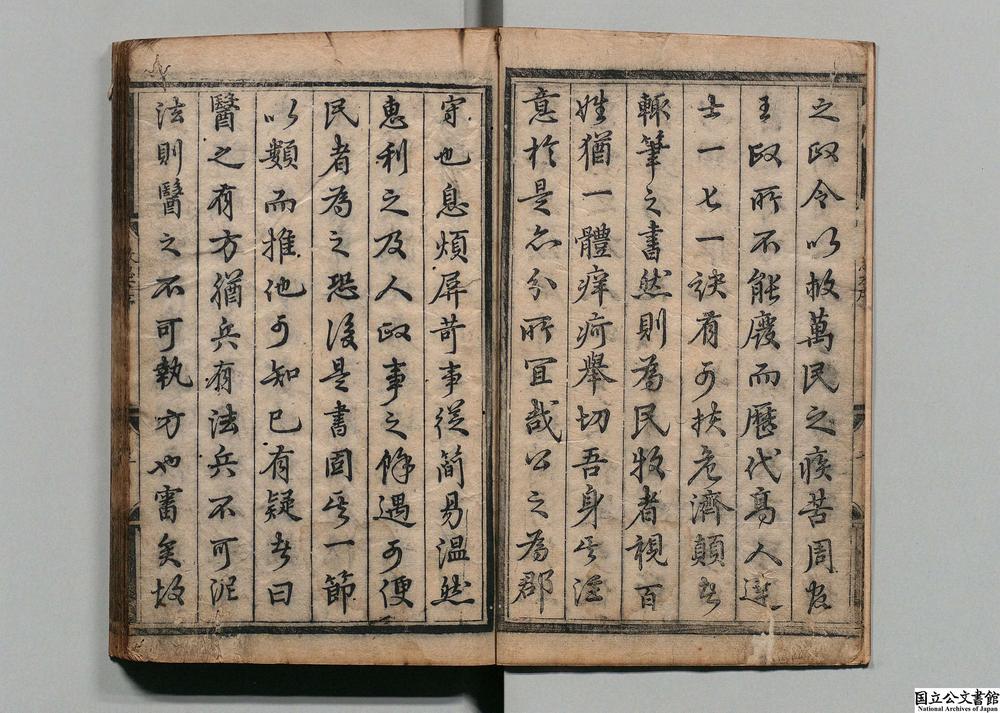 之政令以救萬民之疾苦周官
王政所不能廢而歷代高人達
士一七一訣有可扶危濟顛者
輒筆之書然則為民牧者視百
姓猶一體痒疴舉切吾身其注
意於是亦分所宜哉公之為郡
守也息煩屏苛事從簡易温然
惠利之及人政事之餘遇可便
民者為之恐後是書固其一節
以類而推他可知已有疑者曰
醫之有方猶兵有法兵不可泥
法則醫之不可執方也審矣故
国立公文書館
National Archives of Japan